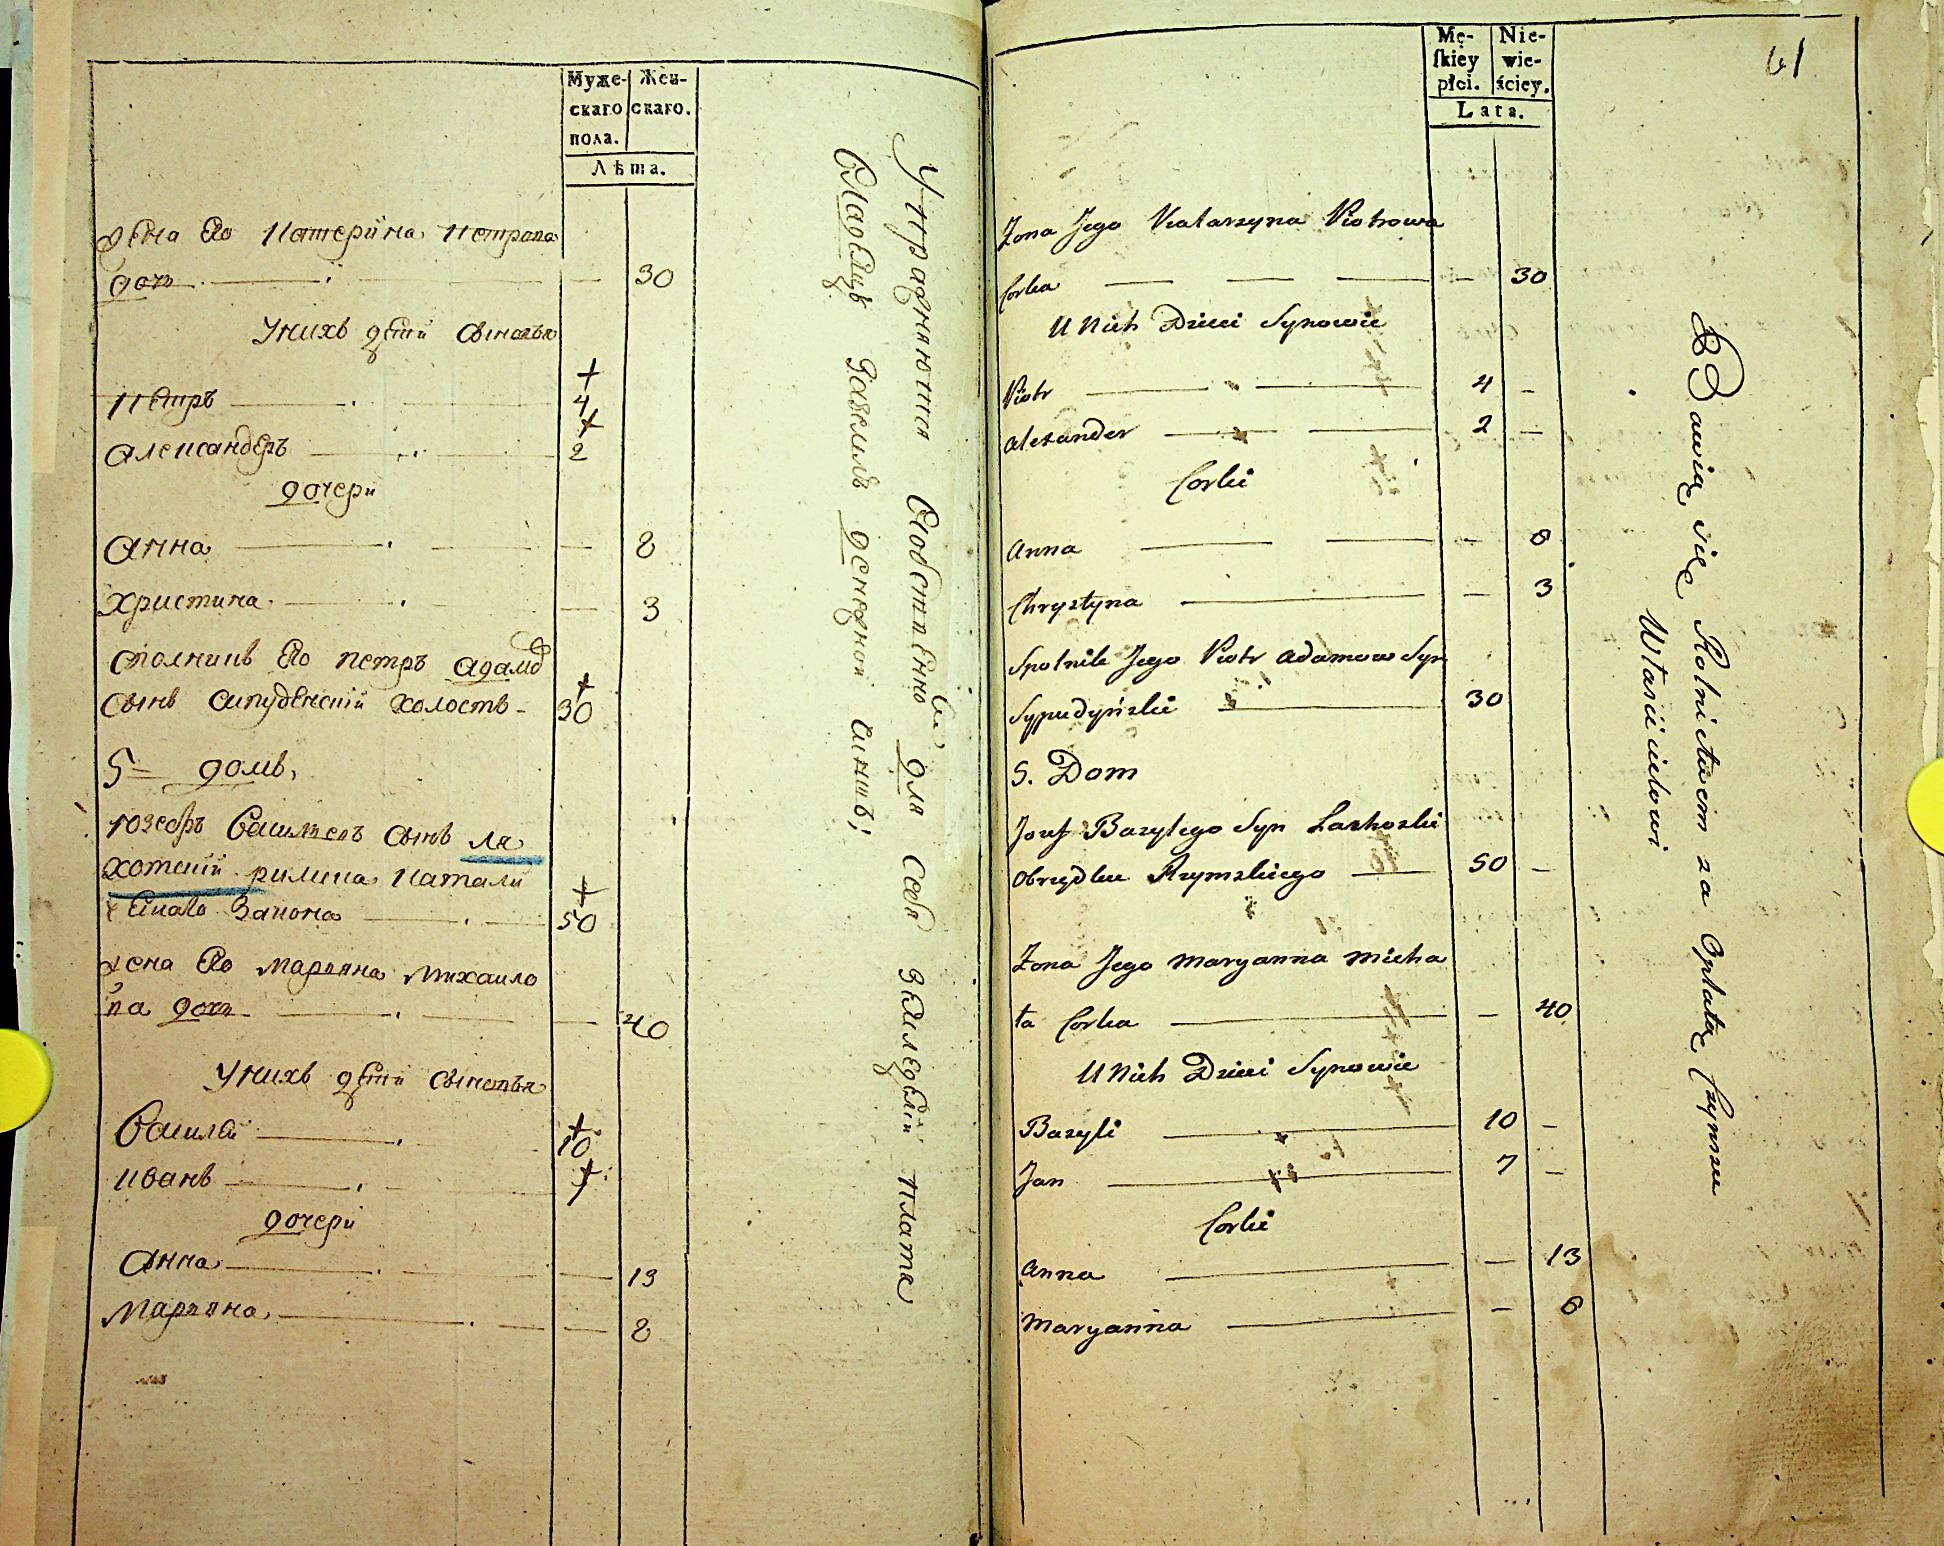 Муже-
скаго
пола.
Жен-
скаго.
Лѣта.
Жена Его Катерина Петрова
дочь — — — 30
У нихъ дѣти Сыновья
Петръ — — 4
Александеръ — — 2
дочери
Анна — — — 8
Христина — — — 3
Сполникъ Его Петръ Адамовъ
Сынъ Сыпуденскiй холостъ - 30
5 = домъ,
Юзефъ Васильевъ Сынъ Ля
хотскiй римска Катали
ческаго Закона — 50
Жена Его Марьяна Михайло
ва дочь — — — 40
У нихъ дѣти Сыновья
Василей — 10
Иванъ — — 7
дочери
Анна — — — 13
Марьяна — — — 8
Упражняются Собственно для Себя Земледѣлiи платя
Владѣлцу Земли денежной чиншъ;
61
Mę-
skiey
płci.
Nie-
wie-
ściey.
Lata.
Żona Jego Katarzyna Piotrowa
Corka — — — — 30
U Nich Dzieci Synowie
Piotr — — 4 —
Alexander — — 2 —
Corki
Anna — — — 8
Chrystyna — — 3
Spolnik Jego Piotr Adamow Syn
Sypudyński — 30
5. Dom
Jozef Bazylego Syn Lachoski
Obrzędku Rzymskiego — 50 —
Żona Jego Maryanna Micha
ła Corka — — 40
U Nich Dzieci Synowie
Bazyli — 10 —
Jan — 7 —
Corki
Anna — — 13
Maryanna — — 8
Bawią się Rolnictwem za Opłatą Czynszu
Właścicielowi